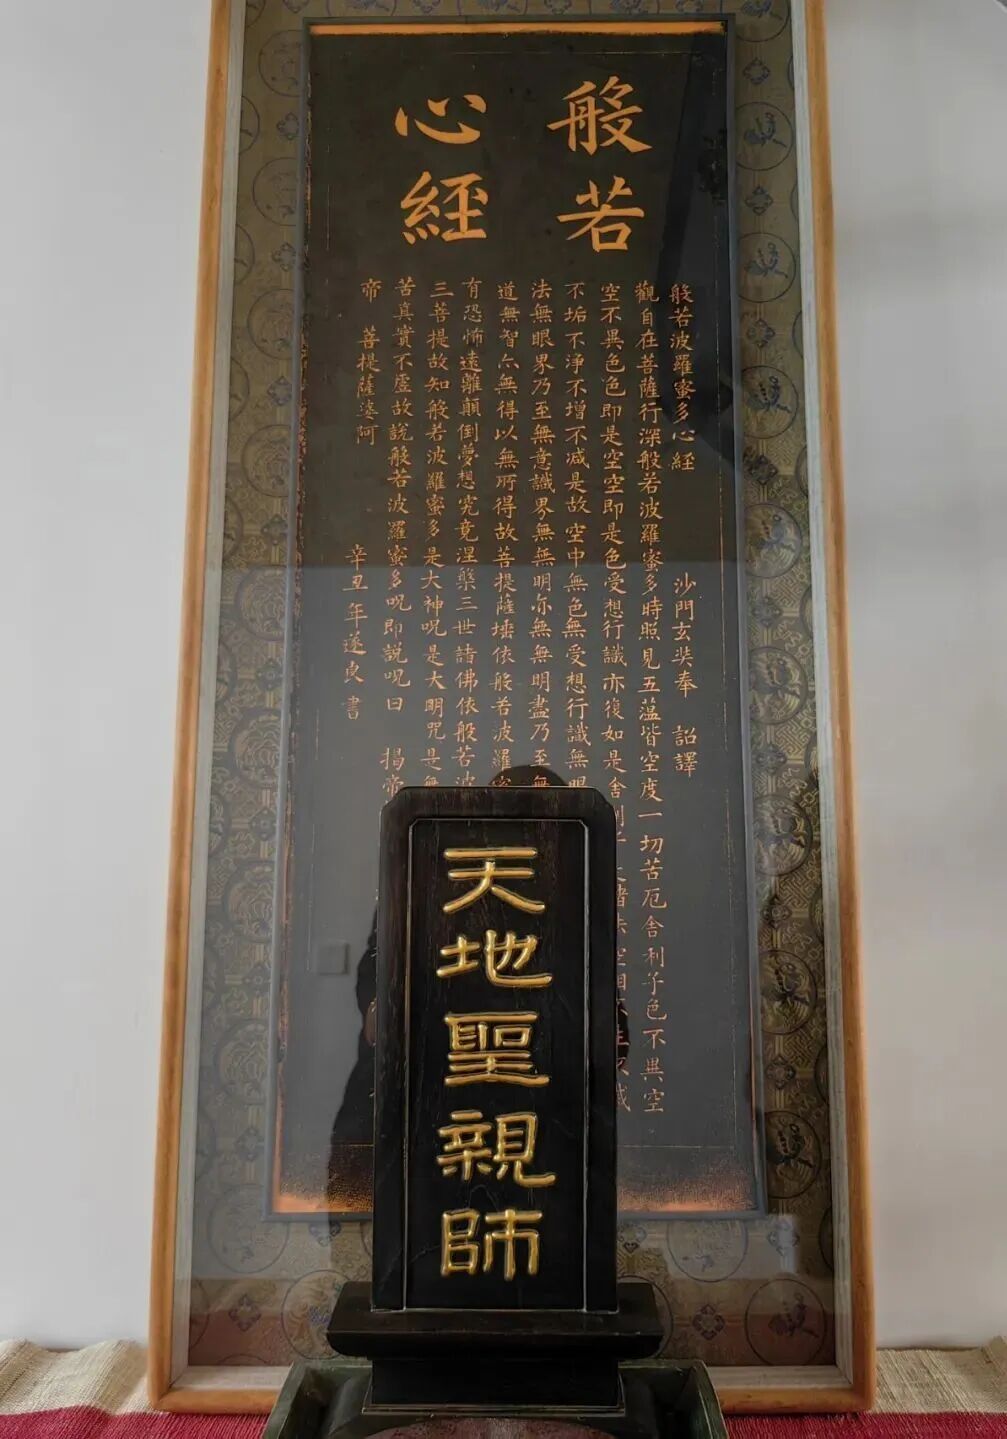 般若
心經
般若波羅蜜多心經 沙門玄奘奉 詔譯
觀自在菩薩行深般若波羅蜜多時照見五蕰皆空度一切苦厄舍利子色不異空
空不異色色即是空空即是色受想行識亦復如是舍利子
不垢不淨不增不减是故空中無色無受想行識無眼
法無眼界乃至無意識界無無明亦無無明盡乃至無
道無智亦無得以無所得故菩提薩埵依般若波羅蜜
有恐怖遠離顛倒夢想究竟涅槃三世諸佛依般若波
三菩提故知般若波羅蜜多是大神呪是大明咒是無
苦真實不虛故說般若波羅蜜多呪即說呪曰 揭帝
帝 菩提薩婆訶
辛丑年遂良書
天地聖親師